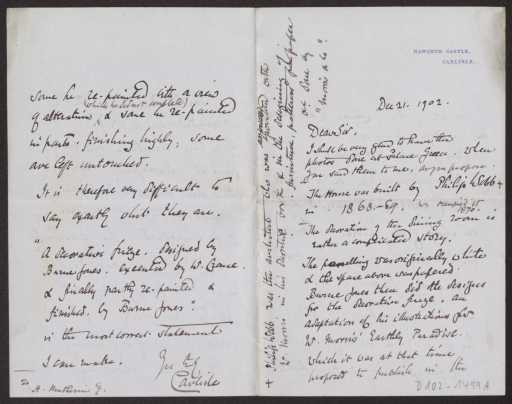 NAWORTH CASTLE,
CARLISLE.
Dec 21. 1902.
Dear Sir.
I shall be very glad to have the
photos done at Palace Green. when
you send them to me,
The House was built by Philip Webb +
in 1868-69. We occupied it
1870.
The decoration of the dining room is
rather a complicated story.
The panelling was originally white
& the space above was papered.
Burne Jones then did the designs
for the decorative frieze. an
adaptation of his illustrations for
W. Morris' Earthly Paradise.
which it was at that time
proposed to publish in the
+ Philip Webb was the architect who was associated with
W. Morris in his decorative work & in the designing of
furniture, patterns of paper
etc done by
"Morris & Co"
some he re-painted with a view
(which he did not complete)
of alteration, & some he re-painted
in parts. finishing highly; some
are left untouched.
It is therefore very difficult to
say exactly what they are.
"A decorative frieze. Designed by
Burne Jones. executed by W. Crane.
& finally partly re-painted &
finished. by Burne Jones".
is the most correct statement
I can make.
Yrs
Carlisle
To H. Muthesius Esq.
D102-1499A